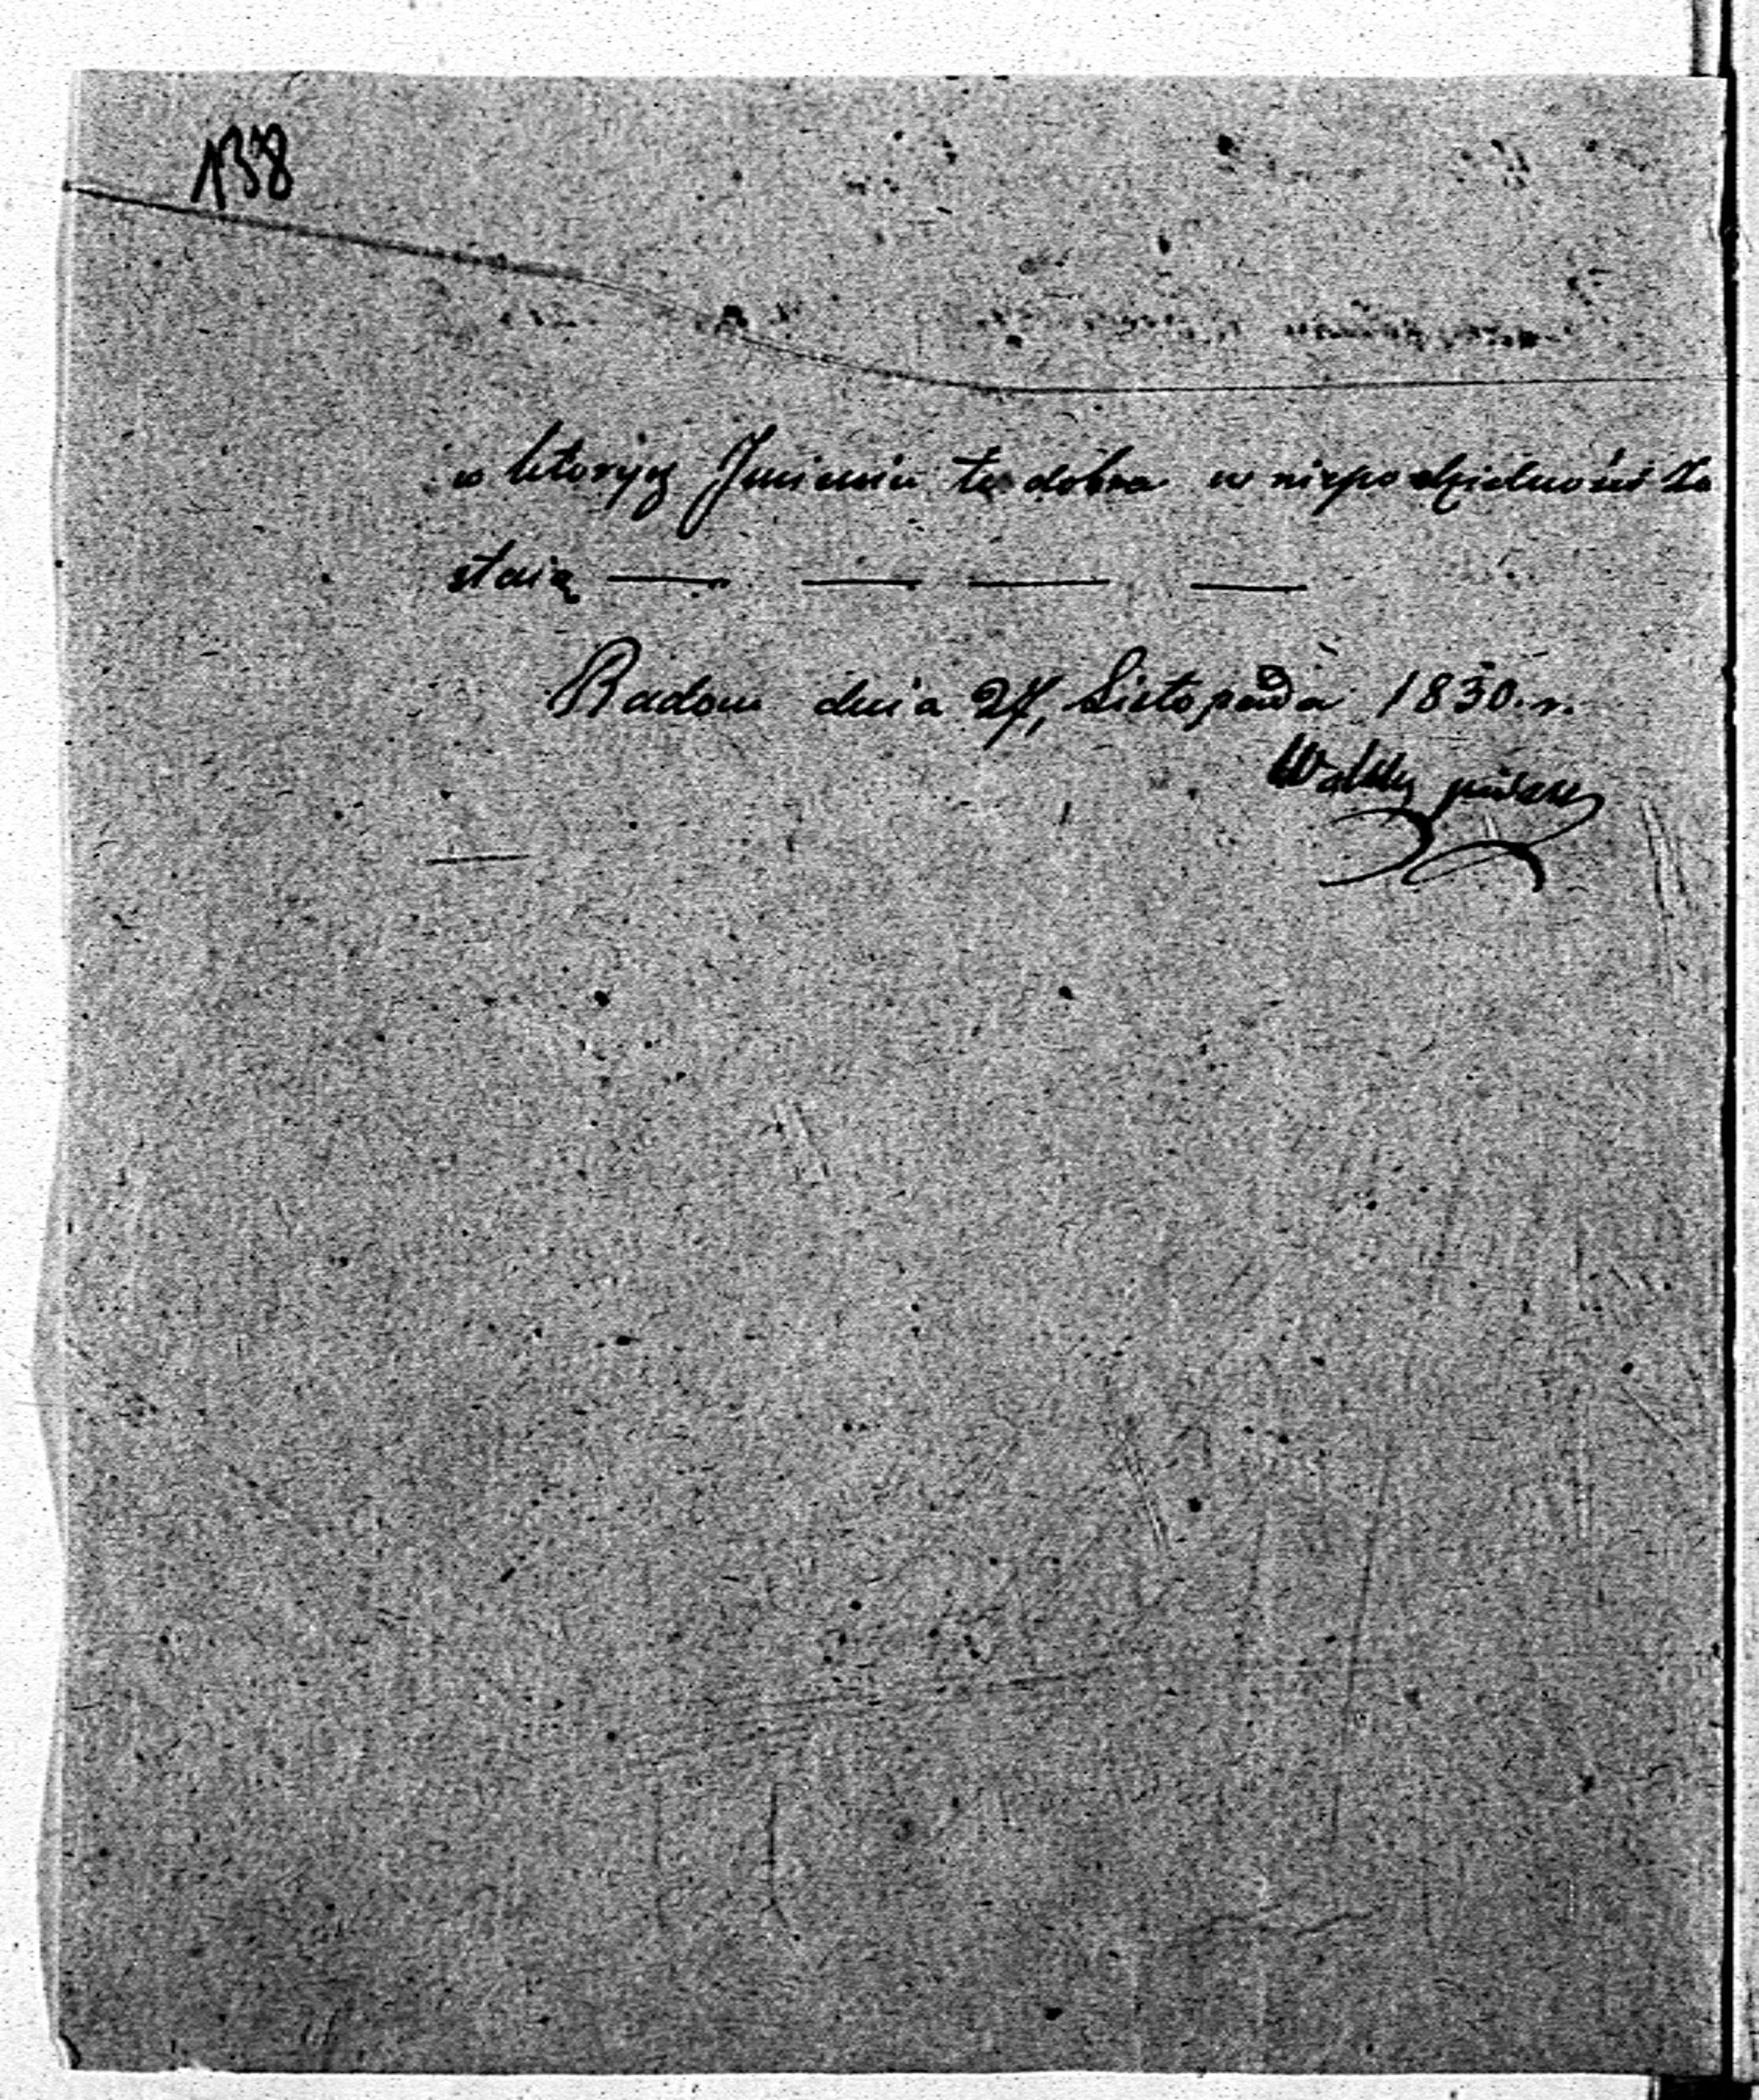 138
w których Jmieniu te dobra w niepodzielności zo
staią
Radom dnia 24, Listopada 1830. r.
pisarz